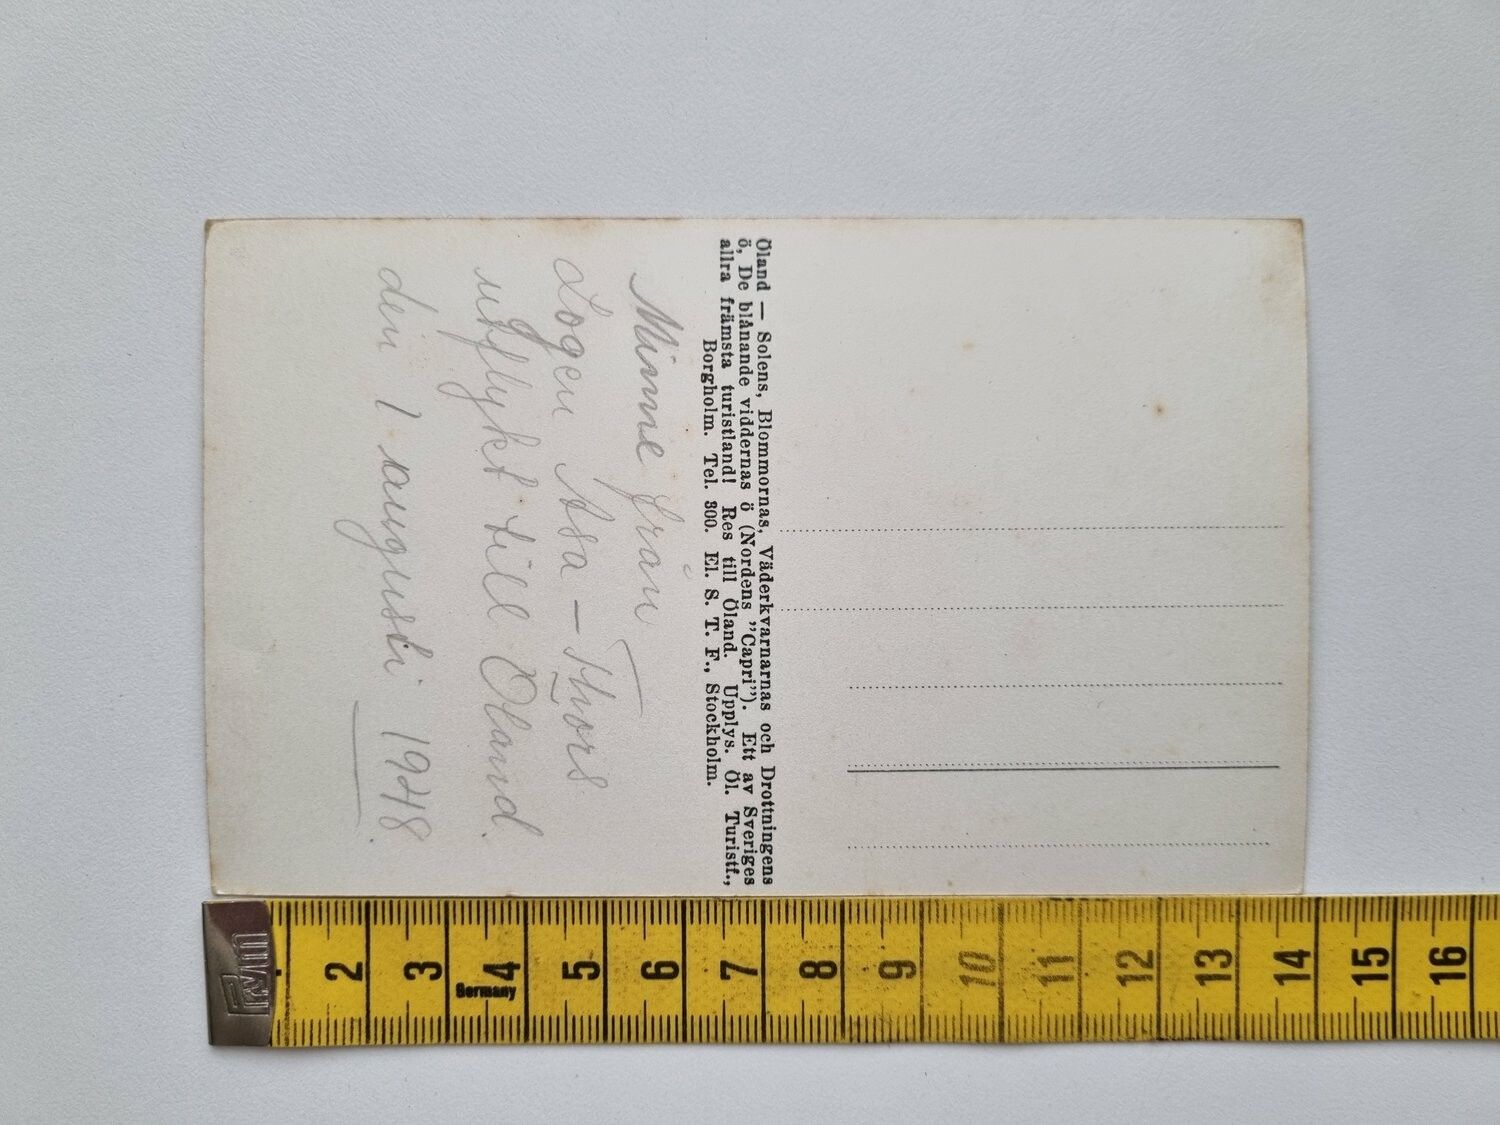 Öland — Solens, Blommornas, Väderkvarnarnas och Drottningens
ö, De blånande viddernas ö (Nordens "Capri"). Ett av Sveriges
allra främsta turistland! Res till Öland. Upplys. Öl. Turistf.,
Borgholm. Tel. 300. El. S. T. F., Stockholm.
Minne från
Logen Asa – Thors
utflykt till Öland.
den 1 augusti 1948.
2 3 4 5 6 7 8 9 10 11 12 13 14 15 16
Germany